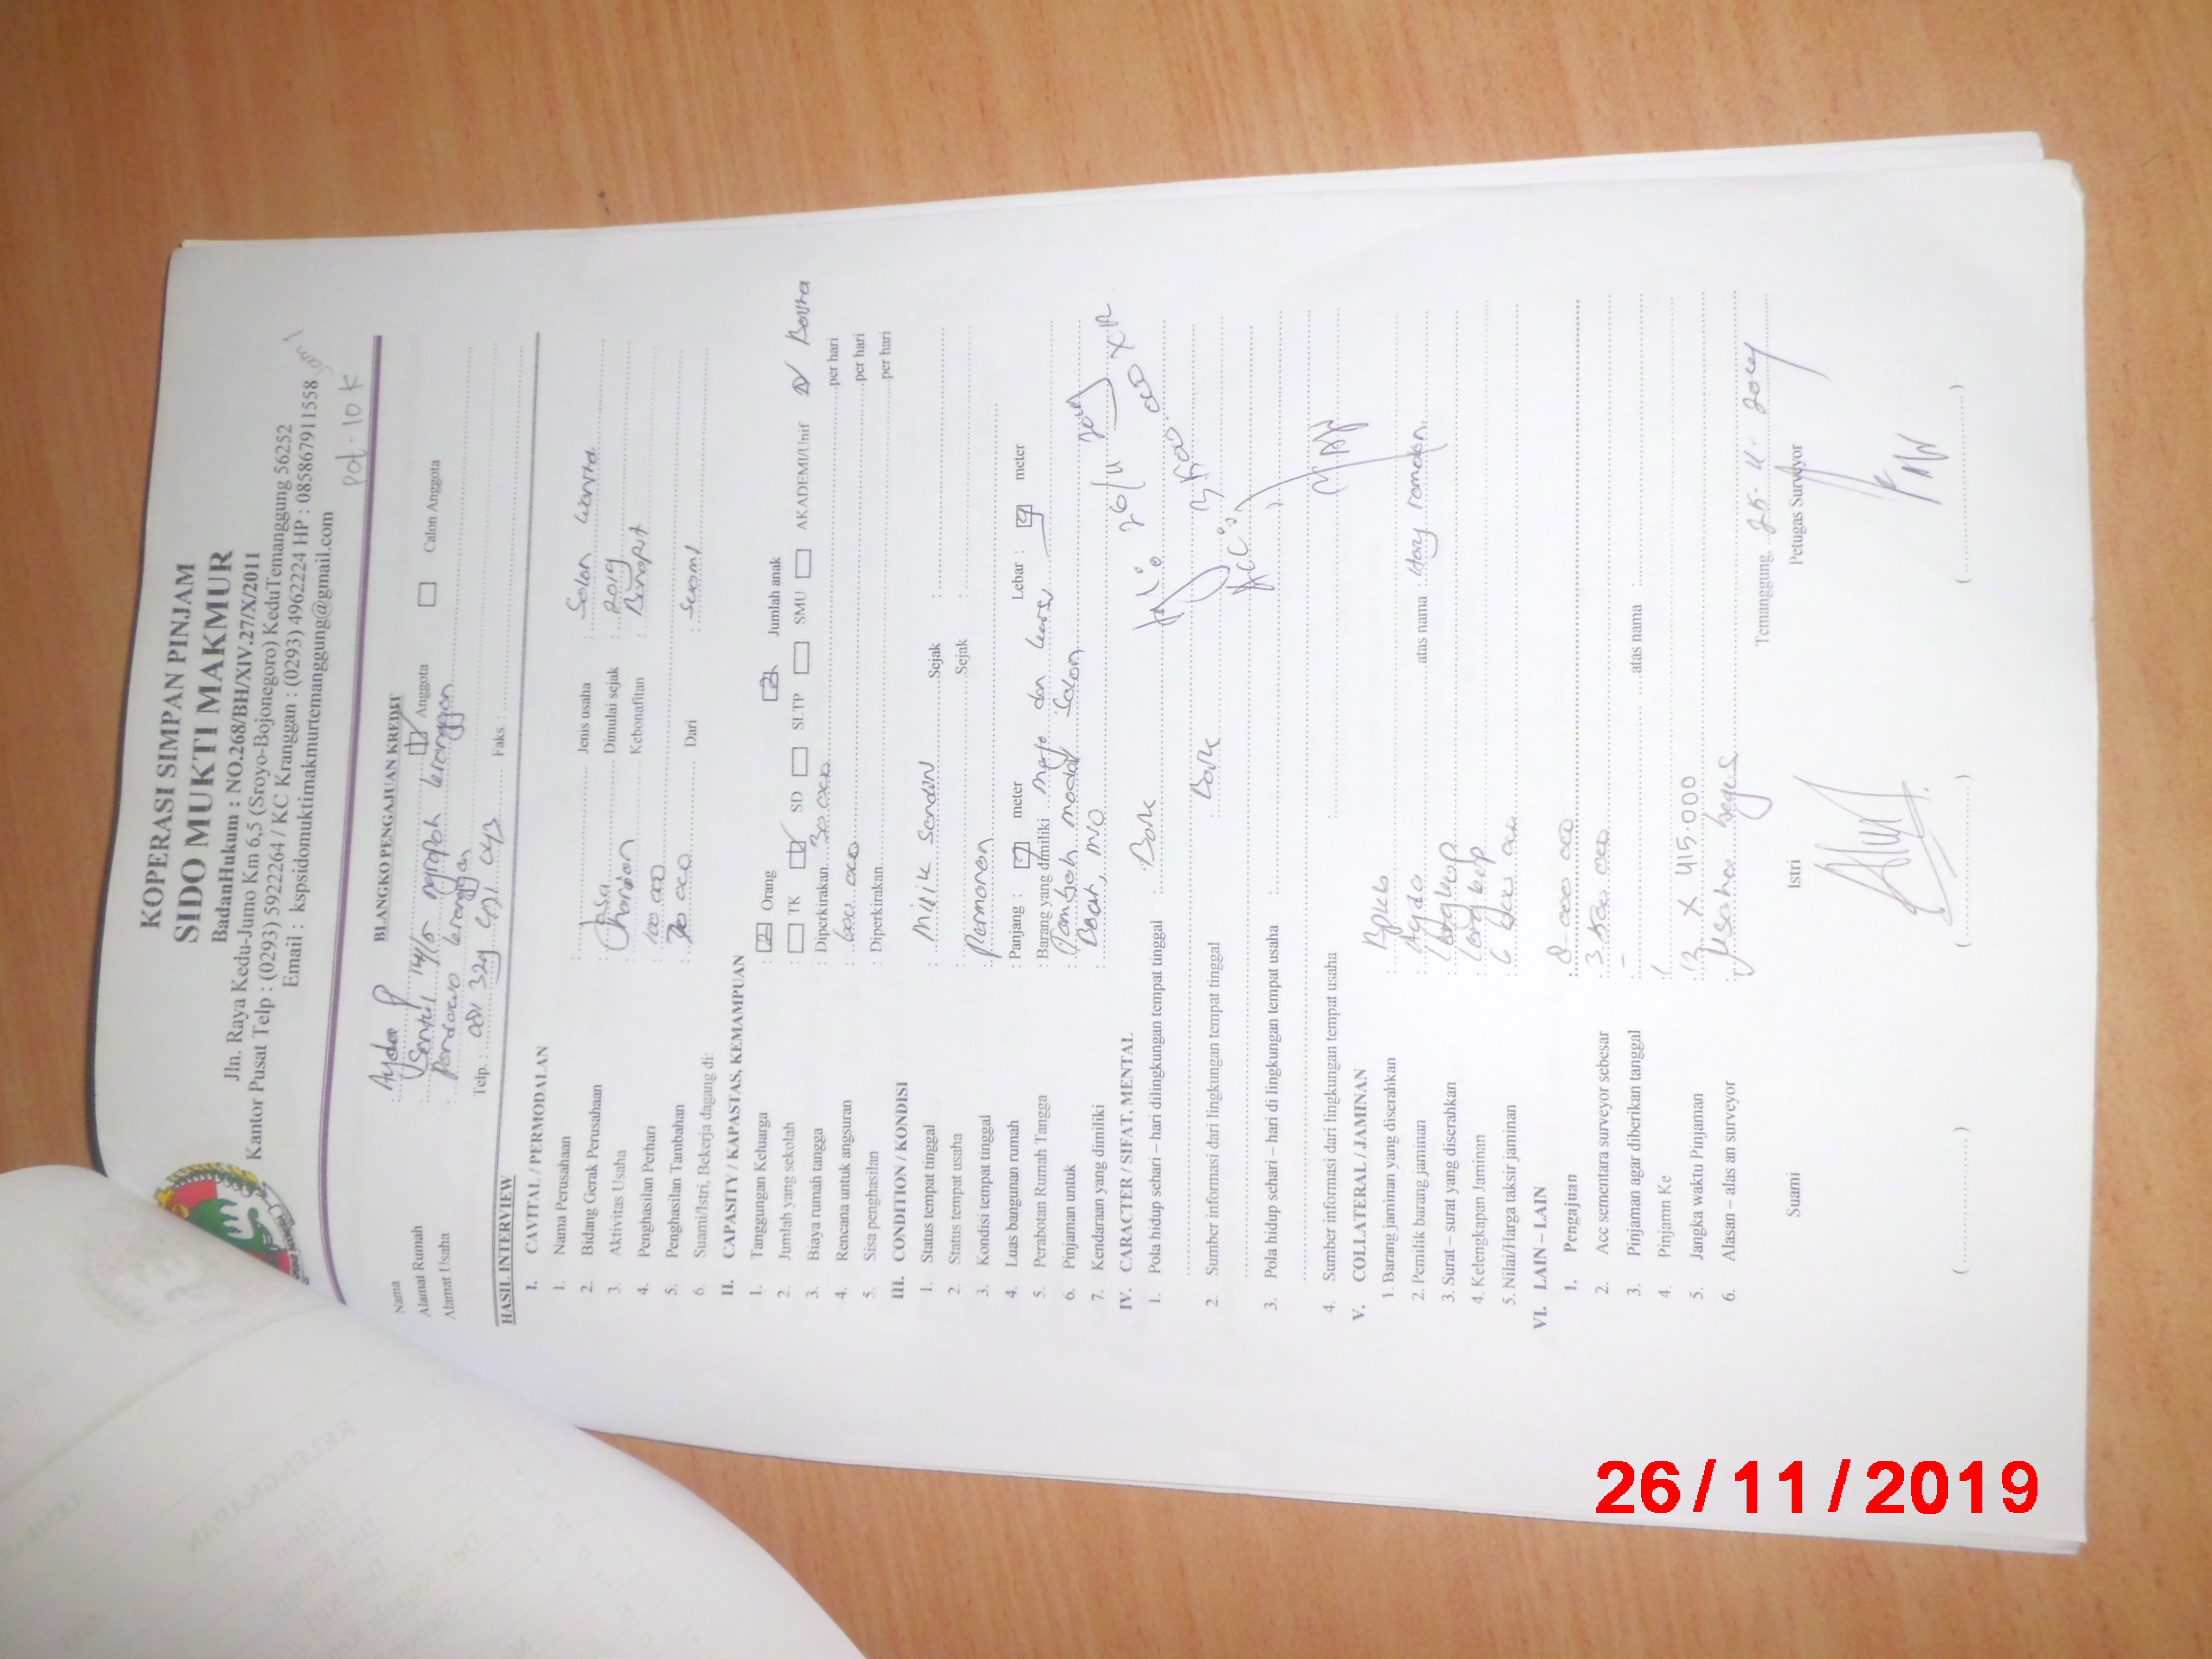 KOPERASI SIMPAN PINJAM
SIDO MUKTI MAKMUR
BadanHukum : NO.268/BH/XIV.27/X/2011
Jln. Raya Kedu-Jumo Km 6,5 (Sroyo-Bojonegoro) KeduTemanggung 56252
Kantor Pusat Telp : (0293) 5922264 / KC Kranggan : (0293) 4962224 HP : 085867911558
Email : kspsidomuktimakmurtemanggung@gmail.com
pot. 10 k
BLANGKO PENGAJUAN KREDIT
Nama :
Anggota Calon Anggota
Alamat Rumah : Sentul 14/5 ngropoh kranggan
Alamat Usaha : Pendowo kranggan
Telp. : 081 329 Faks. :
HASIL INTERVIEW
I. CAVITAL / PERMODALAN
1. Nama Perusahaan : Jenis usaha : Salon
2. Bidang Gerak Perusahaan : Jasa Dimulai sejak : 2019
3. Aktivitas Usaha : Harian Kebonafitan :
4. Penghasilan Perhari : 100 000
5. Penghasilan Tambahan : 70 000 Dari : Suami
6. Suami/Istri, Bekerja dagang di:
II. CAPASITY / KAPASTAS, KEMAMPUAN
1. Tanggungan Keluarga : 2 Orang 2 Jumlah anak
2. Jumlah yang sekolah : TK 1 SD SLTP SMU AKADEMI/Unif
3. Biaya rumah tangga : Diperkirakan 30 000 per hari
4. Rencana untuk angsuran : 600 000 per hari
5. Sisa penghasilan : Diperkirakan per hari
III. CONDITION / KONDISI
1. Status tempat tinggal : Milik Sendiri Sejak :
2. Status tempat usaha : Sejak :
3. Kondisi tempat tinggal : Permanen
4. Luas bangunan rumah : Panjang : 7 meter Lebar : 9 meter
5. Perabotan Rumah Tangga : Barang yang dimiliki meja dan kursi
6. Pinjaman untuk : Tambah modal Salon
7. Kendaraan yang dimiliki :
IV. CARACTER / SIFAT, MENTAL
1. Pola hidup sehari – hari dilingkungan tempat tinggal : Baik
2. Sumber informasi dari lingkungan tempat tinggal : Baik
3. Pola hidup sehari – hari di lingkungan tempat usaha :
4. Sumber informasi dari lingkungan tempat usaha :
Acc:
V. COLLATERAL / JAMINAN
1. Barang jaminan yang diserahkan : Bpkb
2. Pemilik barang jaminan : atas nama
3. Surat – surat yang diserahkan : lengkap
4. Kelengkapan Jaminan : lengkap
5. Nilai/Harga taksir jaminan :
VI. LAIN – LAIN
1. Pengajuan : 8 000 000
2. Acc sementara surveyor sebesar : 3 500 000
3. Pinjaman agar diberikan tanggal : - atas nama :
4. Pinjamn Ke : 1
5. Jangka waktu Pinjaman : 12 X 415.000
6. Alasan – alas an surveyor : Usaha bagus
Temanggung,
Suami Istri Petugas Surveyor
(....................) (....................) (....................)
KELENGKAPAN
26/11/2019